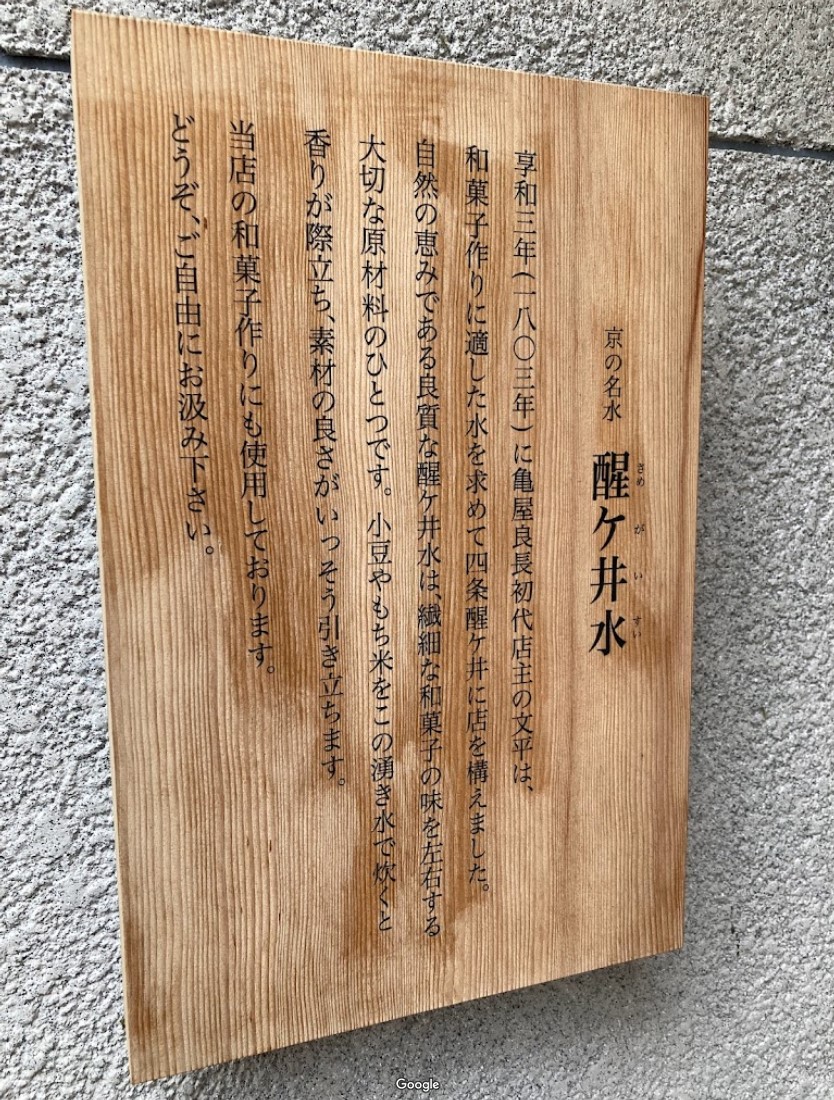 京の名水 醒ケ井水
さめ が い すい
享和三年(一八〇三年)に亀屋良長初代店主の文平は、
和菓子作りに適した水を求めて四条醒ケ井に店を構えました。
自然の恵みである良質な醒ケ井水は、繊細な和菓子の味を左右する
大切な原材料のひとつです。小豆やもち米をこの湧き水で炊くと
香りが際立ち、素材の良さがいっそう引き立ちます。
当店の和菓子作りにも使用しております。
どうぞ、ご自由にお汲み下さい。
Google